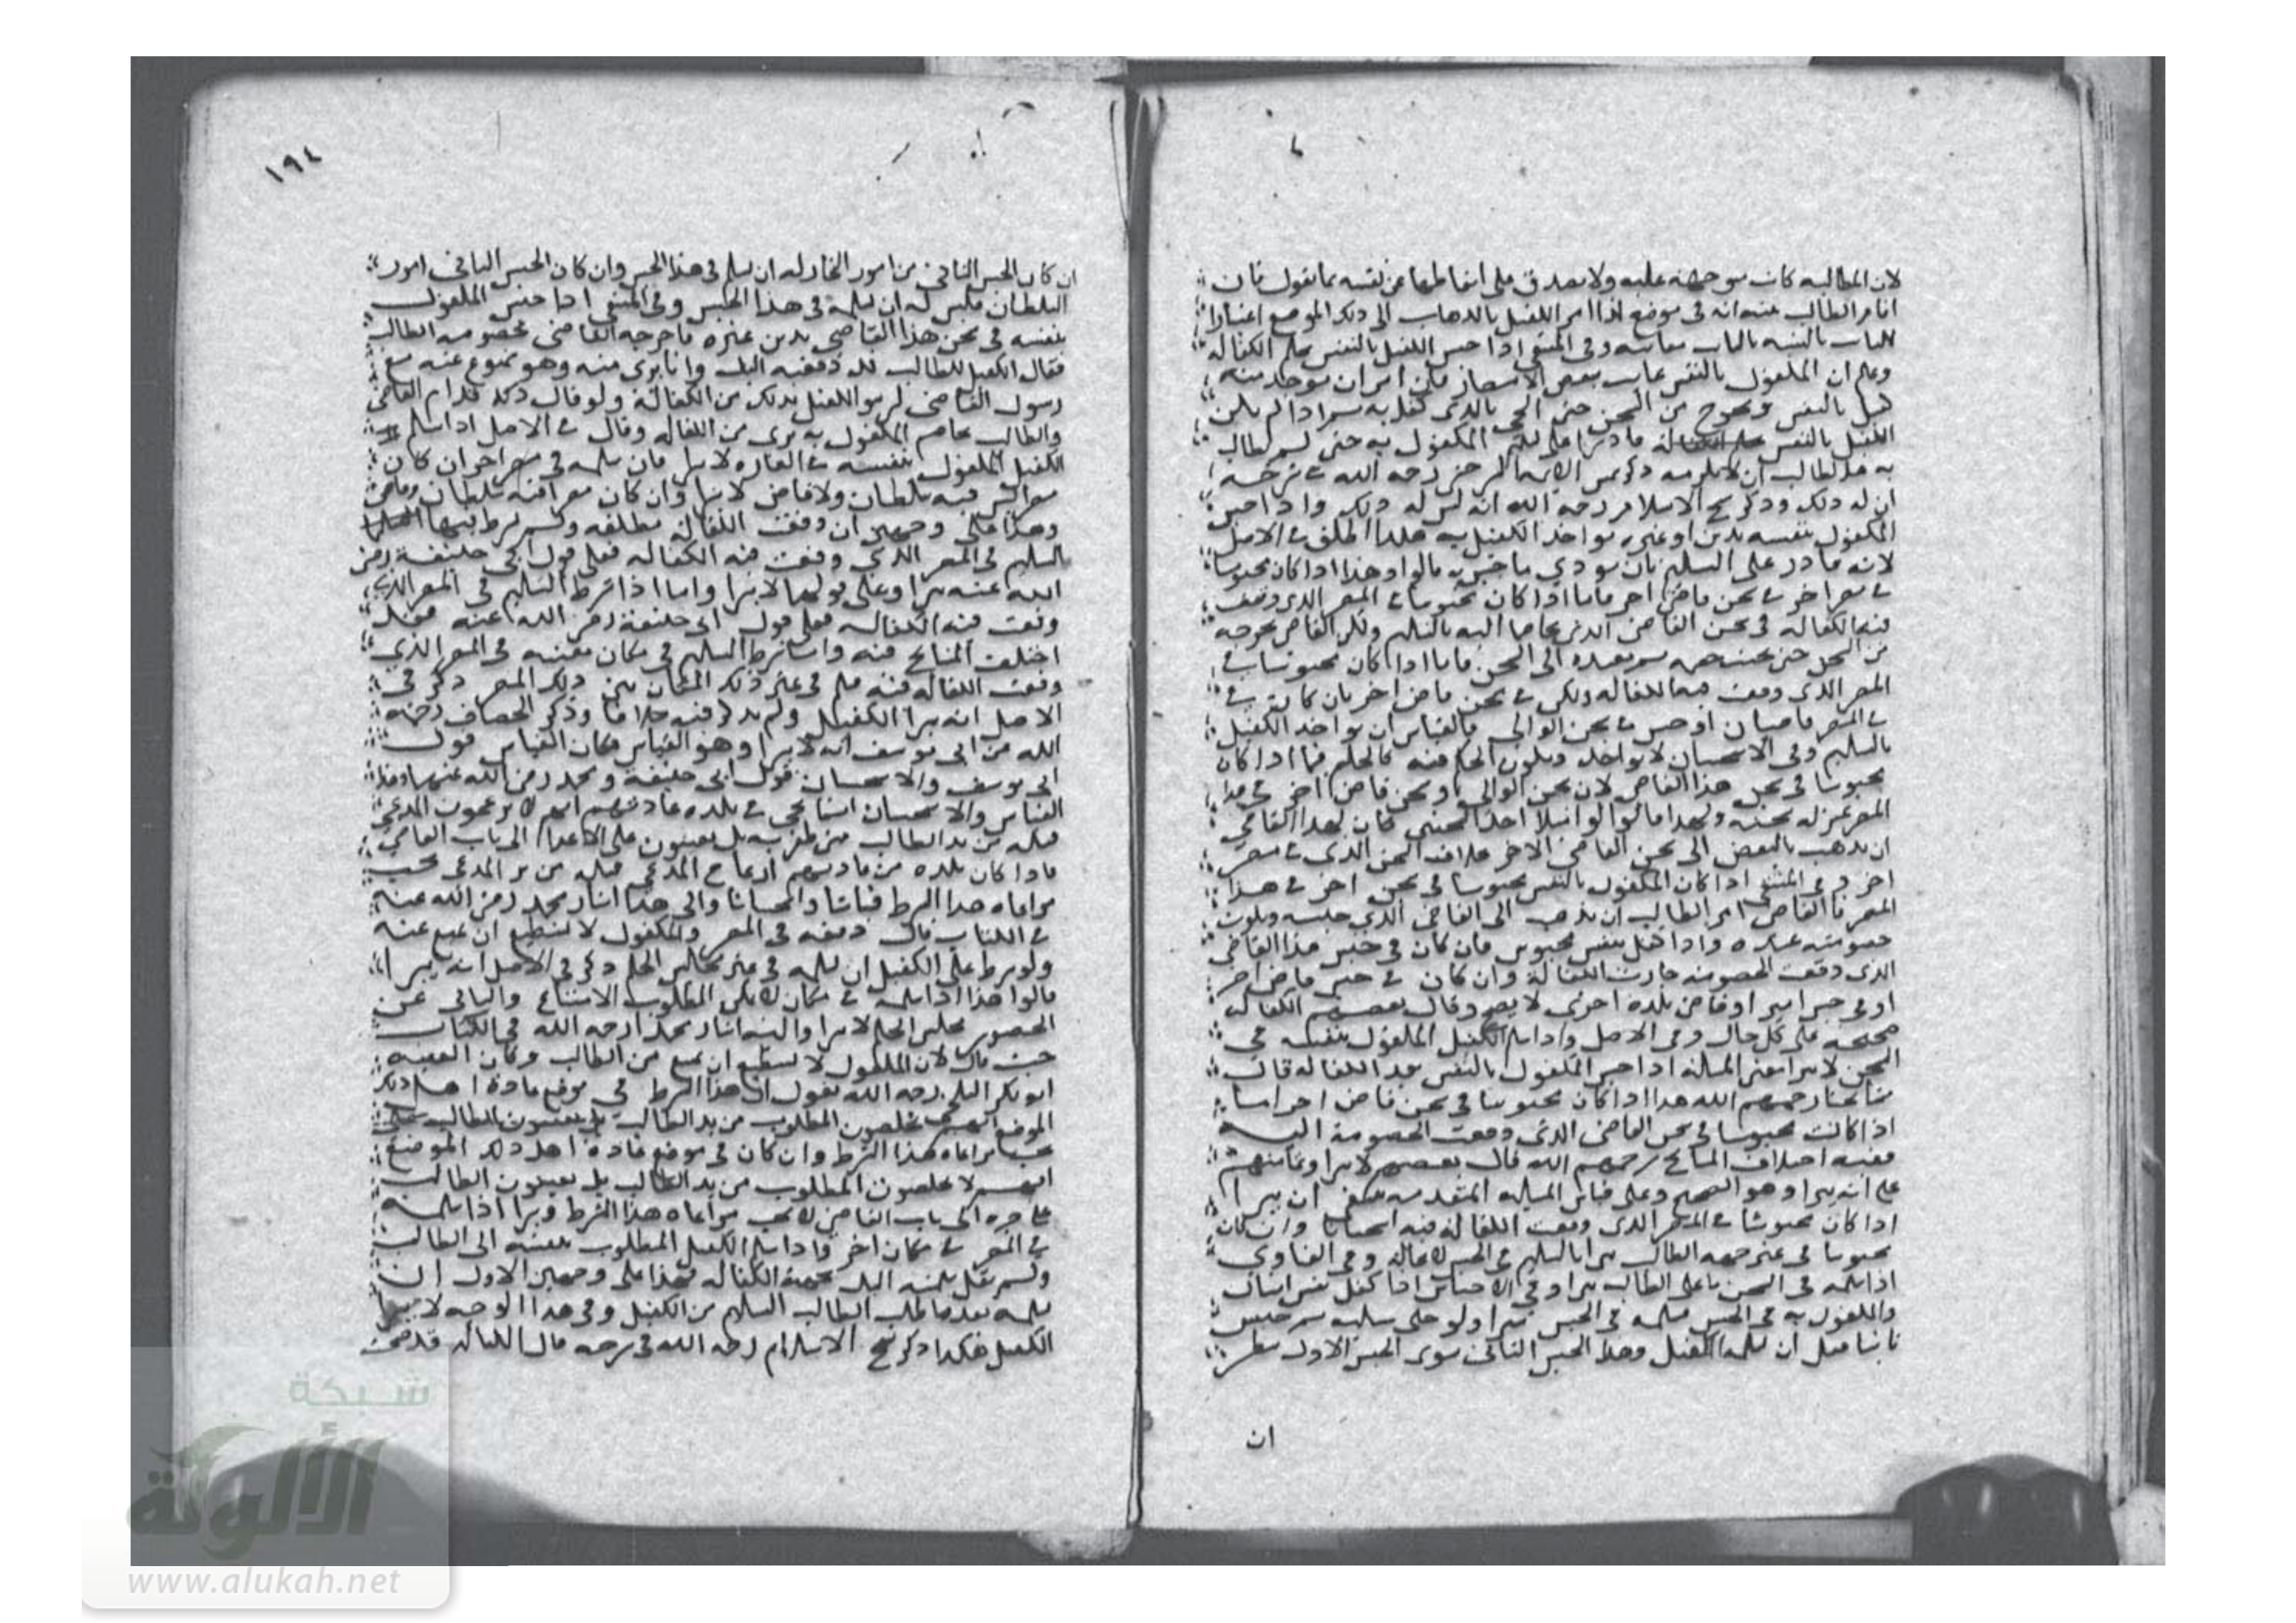 لان المطالبه كانت متوجهة عليه ولا يصدق على اسقاطها عن نفسه بما يقول فان
اقام الطالب بينه انه في موضع كذا امر الكفيل بالذهاب الى ذلك الموضع اعتبارا
للثابت بالبينه بالثابت معاينه وفي المنتقى اذا حبس الكفيل بالنفس بحكم الكفاله
وعلم ان المكفول بالنفس غايب ببعض الامصار فاني امر ان يوخذ منه
كفيل بالنفس ويخرج من السجن حتى يجي بالذي كفل به
الكفيل بالنفس المكفول به حتى
به هل للطالب ان يلازمه ذكر شمس الايمه السرخسي رحمه الله في شرحه
ان له ذلك وذكر شيخ الاسلام رحمه الله انه ليس له ذلك واذا حبس
المكفول بنفسه بدين او غيره يواخذ الكفيل به هكذا اطلق في الاصل
لانه قادر على التسليم بان يودي ما حبس به قالوا وهذا اذا كان محبوسا
في مصر اخر في سجن قاض اخر فاما اذا كان محبوسا في المصر الذي وقعت
فيه الكفاله في سجن القاضي الذي تخاصما اليه بالتسليم ولكن القاضي يخرجه
من السجن حتى ثم يعيده الى السجن فاما اذا كان محبوسا في
المصر الذي وقعت فيه الكفاله ولكن في سجن قاض اخر بان كان في
في المصر قاضيان او حبس في سجن الوالي فالقياس ان يواخذ الكفيل
بالتسليم وفي الاستحسان لا يواخذ ويكون الحكم فيه كالحكم فيما اذا كان
محبوسا في سجن هذا القاضي لان سجن الوالي او سجن قاض اخر في هذا
المصر بمنزله سجنه ولهذا قالوا لو امتلا احد السجنين كان لهذا القاضي
ان يذهب بالبعض الى سجن القاضي الاخر بخلاف السجن الذي في مصر
اخر وفي المنتقى اذا كان المكفول بالنفس محبوسا في سجن اخر في هذا
المصر فالقاضي امر الطالب ان يذهب الى القاضي الذي حبسه ويكون
خصومته عنده واذا كفل بنفس محبوس فان كان في حبس هذا القاضي
الذي وقعت الخصومه جازت الكفالة وان كان في حبس قاض اخر
او في حبس امير او قاض بلده اخرى لا يصح وقال بعضهم الكفاله
صحيحه على كل حال وفي الاصل واذا سلم الكفيل المكفول بنفسه في
السجن لا يبرا يعني المسالة اذا حبس المكفول بالنفس بعد الكفاله قال
مشايخنا رحمهم الله هذا اذا كان محبوسا في سجن قاض اخر اما
اذا كانت محبوسا في سجن القاضي الذي وقعت الخصومة اليه
ففيه اختلاف المشايخ رحمهم الله قال بعضهم لا يبرا وعامتهم
على انه يبرا وهو الصحيح وعلى قياس المساله المتقدمه ينبغي ان يبرا
اذا كان محبوسا في المصر الذي وقعت الكفالة فيه استحسانا وان كان
محبوسا في غير جهه الطالب يبرا بالتسليم في الحبس لا محالة وفي الفتاوي
اذا سلمه في السجن باعلى الطالب يبرا وفي الاجناس اذا كفل نفس انسان
والمكفول به في الحبس فسلمه في الحبس يبرا ولو خلي سبيله ثم حبس
ثانيا قبل ان يسلمه الكفيل وهذا الحبس الثاني سوى الحبس الاول ينظر
ان
١٩٤
ان كان الحبس الثاني من امور التجار له ان يسلم في هذا الحبس وان كان الحبس الثاني امور
السلطان فليس له ان يسلمه في هذا الحبس وفي المنتقى اذا حبس المكفول
بنفسه في سجن هذا القاضي بدين غيره فاخرجه القاضي بخصومه الطالب
فقال الكفيل للطالب قد دفعته اليك وانا بري منه وهو ممنوع عنه مع
رسول القاضي لم يبر الكفيل بذلك من الكفالة ولو قال ذلك قدام القاضي
والطالب يخاصم المكفول به بري من الكفاله وقال في الاصل اذا سلم
الكفيل المكفول بنفسه في لا يبرا فان سلمه في مصر اخر ان كان
مصر ليس فيه سلطان ولا قاض لا يبرا وان كان مصر فيه سلطان وقاض
وهذا على وجهين ان وقعت الكفاله مطلقه ولم يشرط فيها
التسليم في المصر الذي وقعت فيه الكفاله فعلى قول ابي حنيفة رضي
الله عنه يبرا وعلى قولهما لا يبرا واما اذا شرط التسليم في المصر الذي
وقعت فيه الكفاله فعلى قول ابي حنيفة رضي الله عنه فقد
اختلف المشايخ فيه واذا شرط التسليم في مكان بعينه في المصر الذي
وقعت الكفاله فيه فسلم في غير ذلك المكان من ذلك المصر ذكر في
الاصل انه يبرا الكفيل ولم يذكر فيه خلافا وذكر الخصاف رحمه
الله عن ابي يوسف انه لا يبرا وهو القياس فكان القياس قول
ابي يوسف والاستحسان قول ابي حنيفة ومحمد رضي الله عنهما وهذا
القياس والاستحسان انما يجي في بلده عادتهم انهم لا ينزعون المدعى
قبله من يد الطالب متى ظفر به بل يعينون على الاعدا الى باب القاضي
فاذا كان بلده من عادتهم انتزاع المدعى قبله من يد المدعي تجب
مراعاه هذا الشرط قياسا واستحسانا والى هذا اشار محمد رضي الله عنه
في الكتاب قال دفعه في المصر والمكفول لا يستطيع ان يمتنع عنه
ولو شرط على الكفيل ان يسلمه في غير مجلس الحكم ذكر في الاصل انه يبرا
قالوا هذا اذا سلمه في مكان لا يمكن المطلوب الامتناع عن
الحضور بمجلس الحكم لا يبرا واليه اشار محمد رحمه الله في الكتاب
حيث قال لان المكفول لا يستطيع ان يمتنع من الطالب وكان الفقيه
ابو بكر البلخي رحمه الله يقول ان هذا الشرط في موضع عادة اهل ذلك
الموضع انهم يخلصون المطلوب من يد الطالب
تجب مراعاه هذا الشرط وان كان في موضع عادة اهل ذلك الموضع
انهم لا يخلصون المطلوب من يد الطالب بل يعينون الطالب
على جره الى باب القاضي لا تجب مراعاه هذا الشرط ويبرا اذا سلمه
في المصر في مكان اخر واذا سلم الكفيل المطلوب بنفسه الى الطالب
ولم يقل سلمته اليك بجهة الكفاله فهذا على وجهين الاول ان
يسلمه بعد ما طلب الطالب التسليم من الكفيل وفي هذا الوجه لا
الكفيل هكذا ذكر شيخ الاسلام رحمه الله في شرحه قال الكفاله قد
شبكة
الألوكة
www.alukah.net